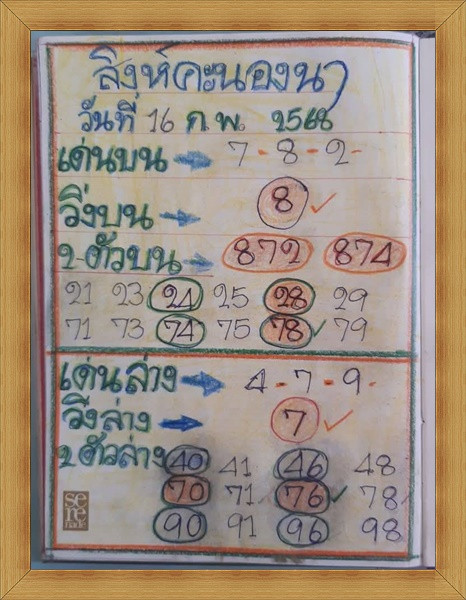 สิงห์คะนองนา
วันที่ 16 ก.พ. 2568
เด่นบน 7-8-2-
วิ่งบน 8
2-ตัวบน 872 874
21 23 24 25 28 29
71 73 74 75 78 79
เด่นล่าง 4-7-9-
วิ่งล่าง 7
2ตัวล่าง 40 41 46 48
70 71 76 78
90 91 96 98
se
re
nade